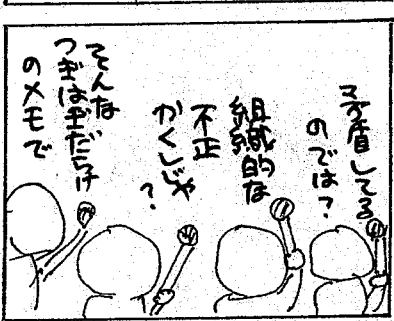 矛盾してる
のでは?
組織的な
不正
かくしじゃ
?
そんな
つぎはぎだらけ
のメモで